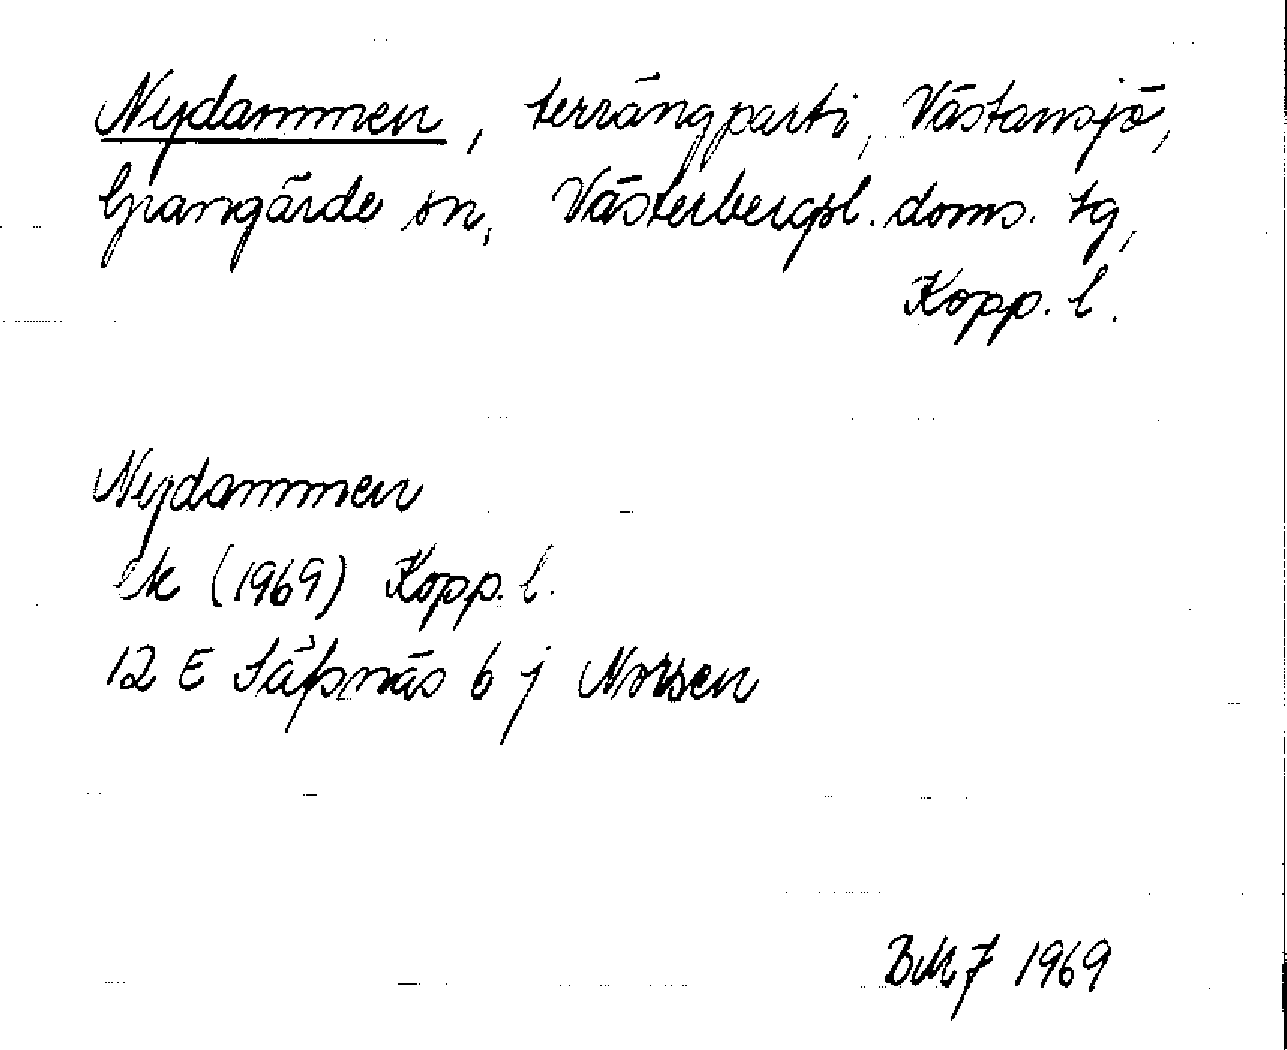 Nydammen, terrängparti, Västansjö,
Grangärde sn, Västerbergsl. doms. tg,
Kopp. l.
Nydammen
ek (1969) Kopp. l.
12 E Säfsnäs 6 j Norsen
BMJ 1969